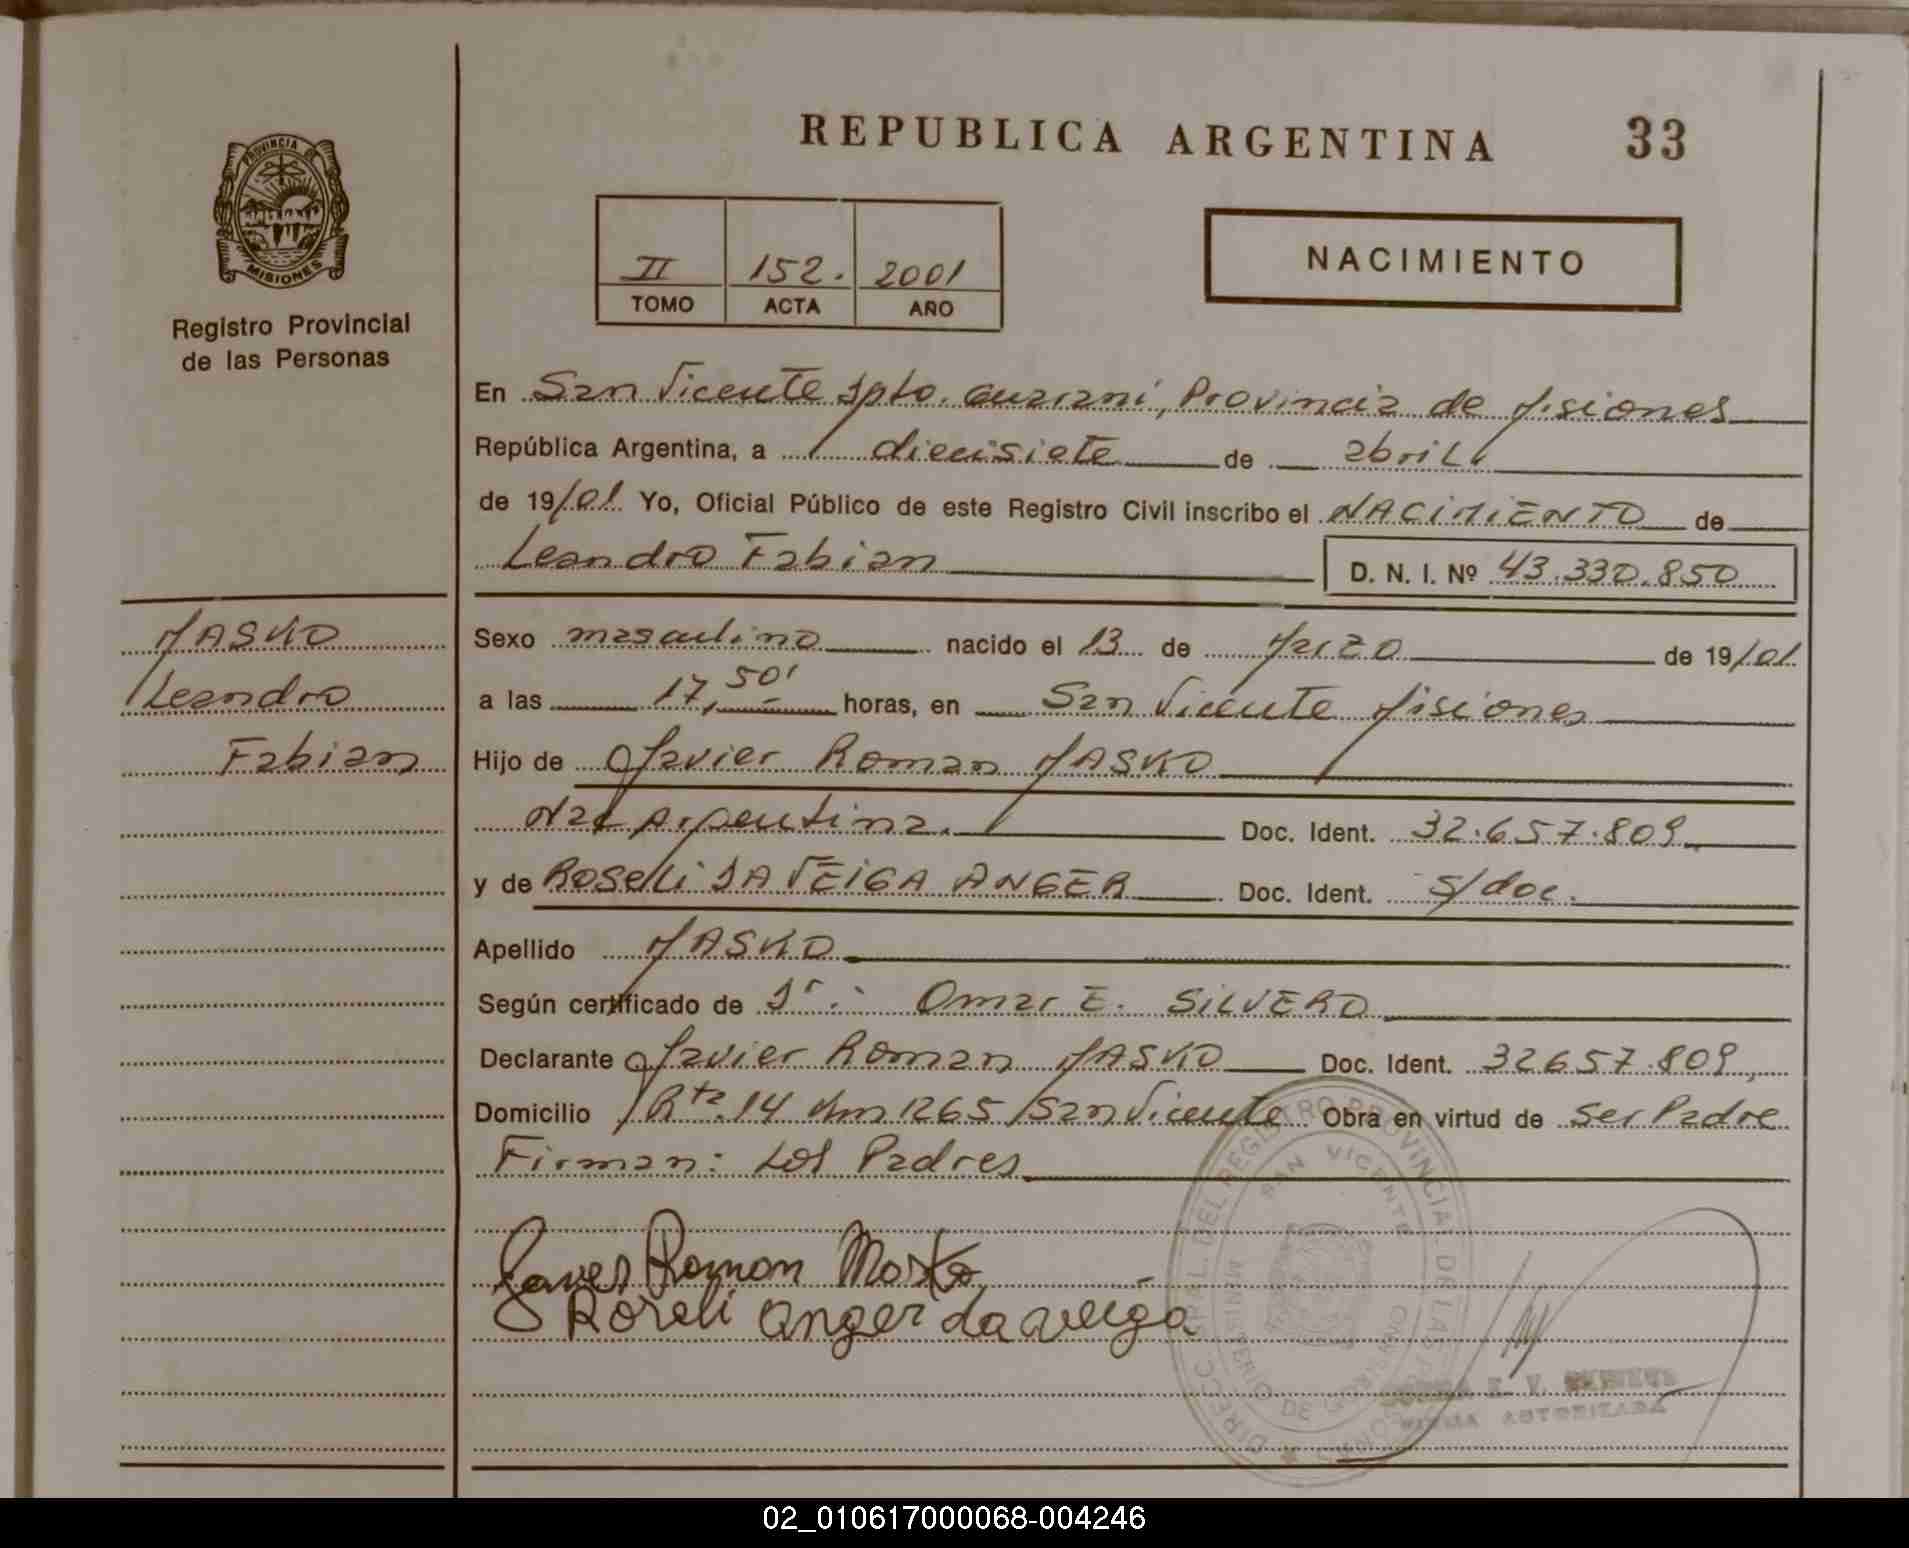 REPUBLICA ARGENTINA 33
PROVINCIA DE
MISIONES
Registro Provincial
de las Personas
II 152. 2001
TOMO ACTA AÑO
NACIMIENTO
En San Vicente Dpto. Guarani, Provincia de Misiones
República Argentina, a diecisiete de abril
de 19/01. Yo, Oficial Público de este Registro Civil inscribo el NACIMIENTO de
Leandro Fabian D. N. I. Nº 43.330.850
MASKO
Leandro
Fabian
Sexo masculino nacido el 13 de Marzo de 19/01.
a las 17,50' horas, en San Vicente Misiones
Hijo de Javier Roman MASKO
Nac Argentina. Doc. Ident. 32.657.809
y de Roseli DA VEIGA ANGER Doc. Ident. S/doc.
Apellido MASKO
Según certificado de Dr. Omar E. SILVERO
Declarante Javier Roman MASKO Doc. Ident. 32657.809
Domicilio Rta. 14 Km 1265 San Vicente Obra en virtud de Ser Padre
Firman: Los Padres
Javier Ramon Masko
Roseli anger da veiga
DIRECC. GRAL. DEL REGISTRO PROVINCIAL DE LAS PERSONAS
SAN VICENTE
MINISTERIO DE GOBIERNO
E. V.
FIRMA AUTORIZADA
02_010617000068-004246